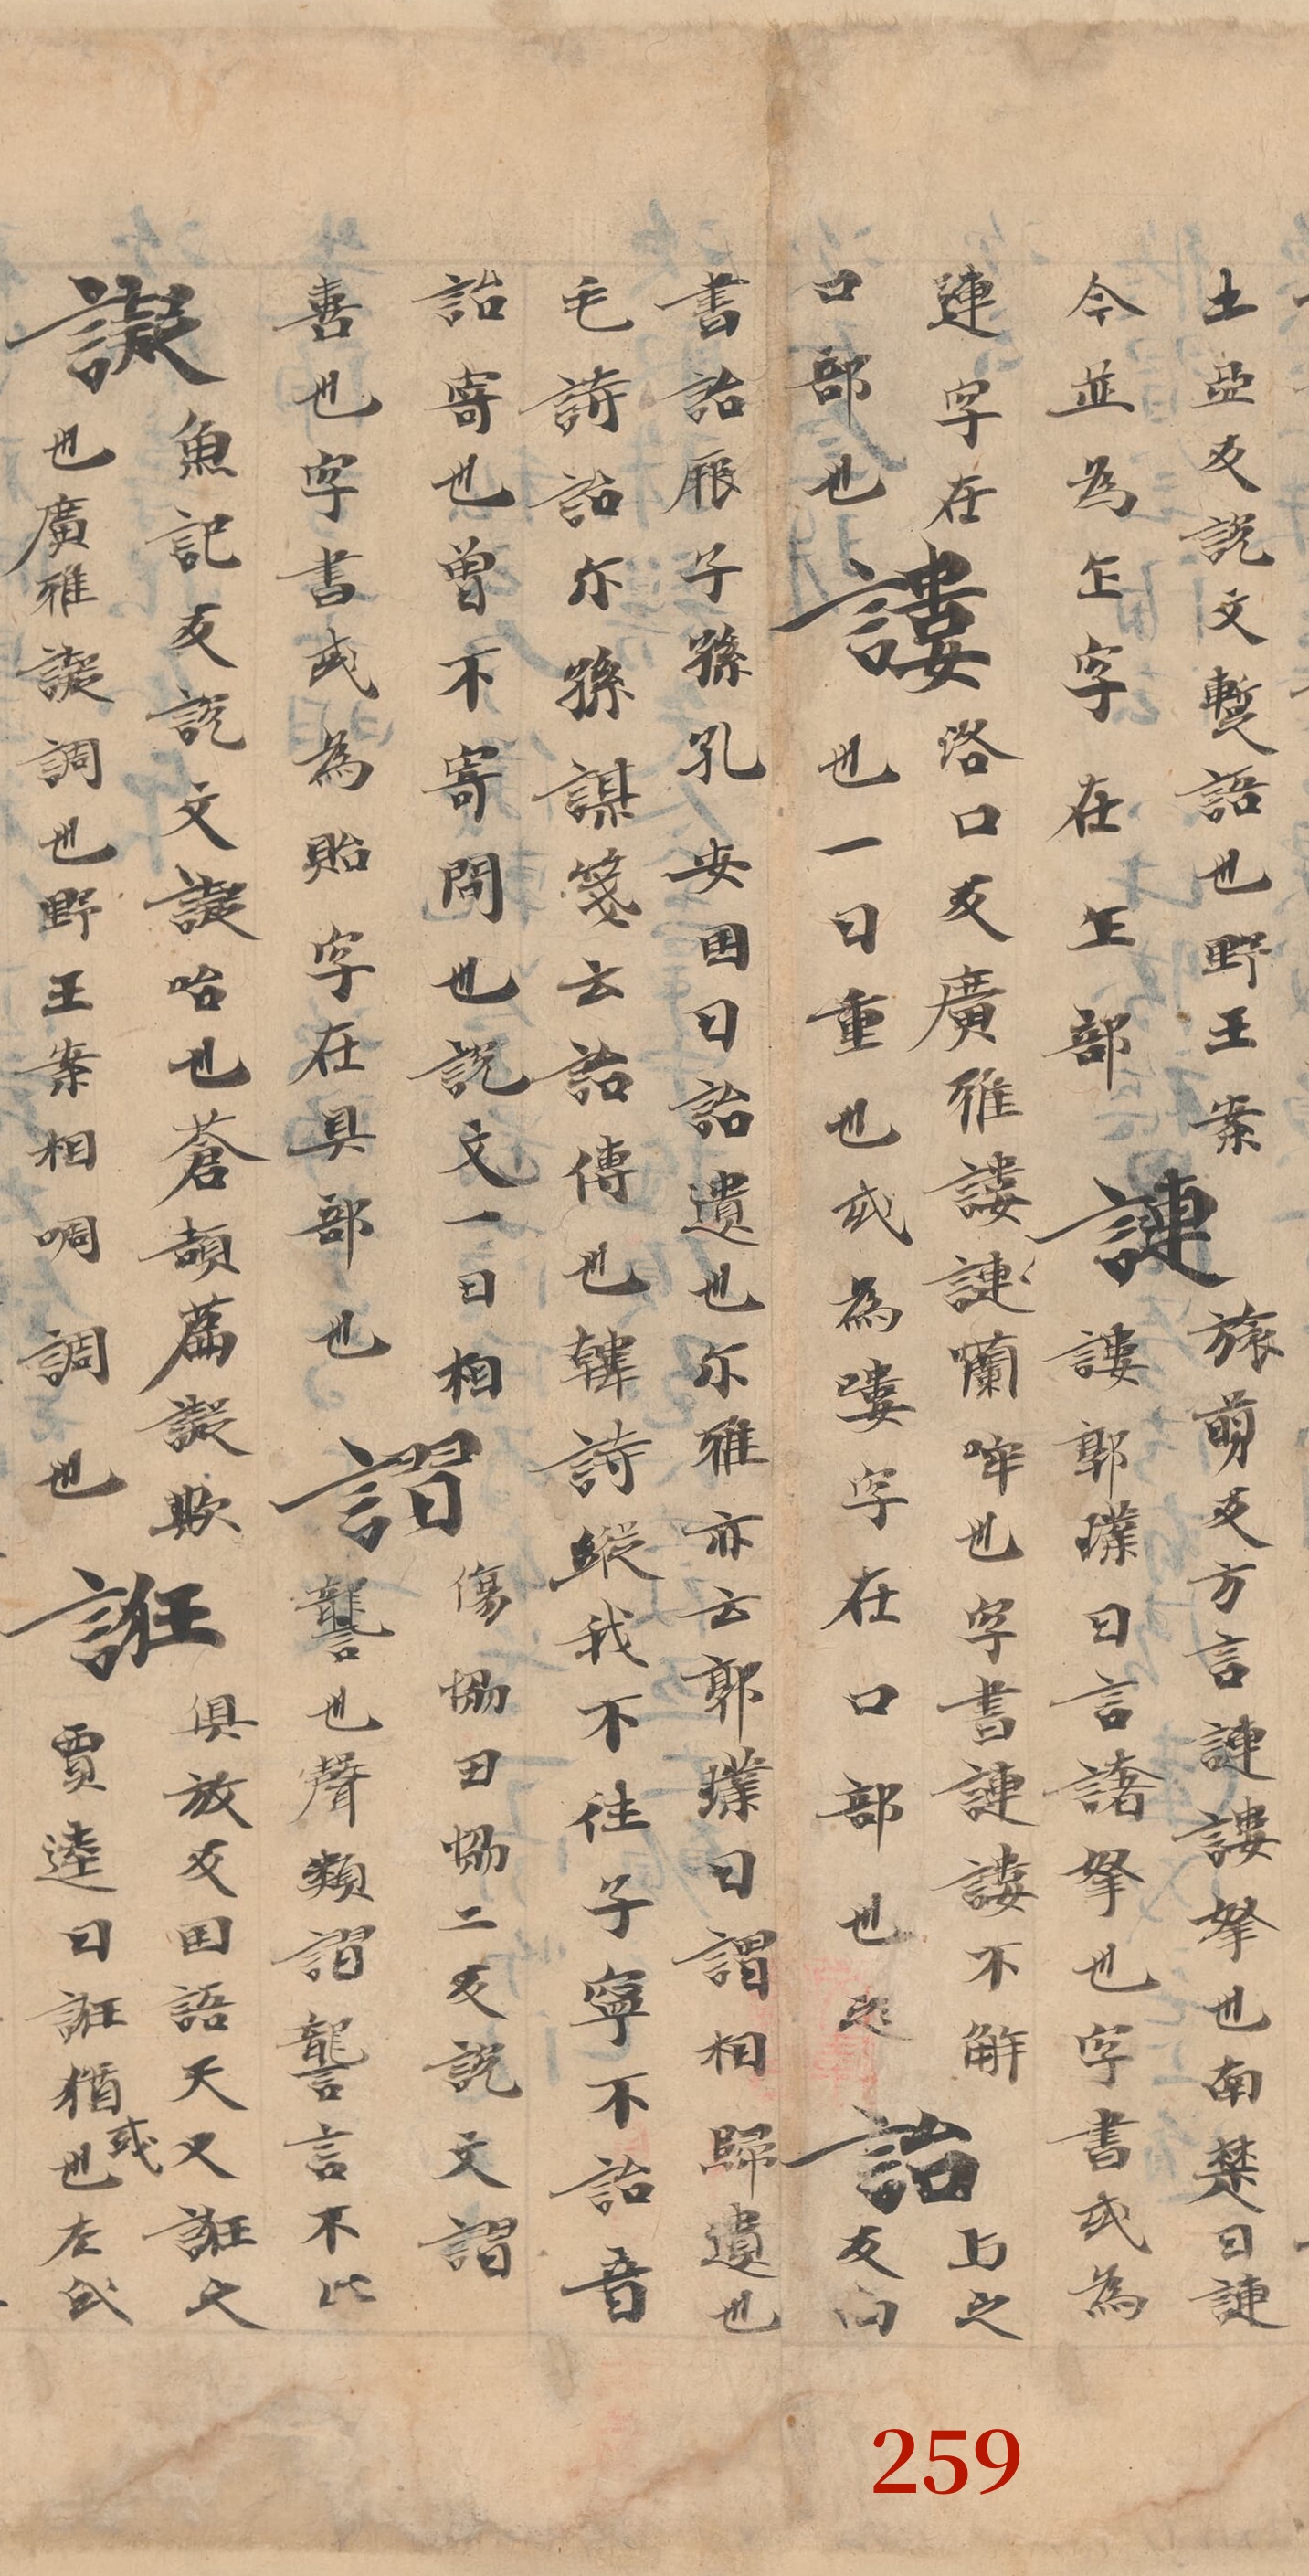 土亞反説文暫語也野王案
今並為乍字在部
謰
旅萌反方言謰謱拏也南楚曰謰
謱郭璞曰言諸拏也字書或為
連字在
口部也
謱
洛口反廣雅謱謰囒哰也字書謰謱不解
也一曰重也或為嘍字在口部也
詒
与之
反向
書詒厥子孫孔安国曰詒遺也尓雅亦云郭璞曰謂相歸遺也
毛詩詒尓孫謀箋云詒傳也韓詩縱我不往子寧不詒音
詒寄也曾不寄問也説文一曰相
善也字書或為貽字在具部也
謵
傷協田協二反説文謵
讋也聲類謵讋言不止
譺
魚記反説文譺咍也蒼頡篇譺欺
也廣雅譺調也野王案相啁調也
誑
俱放反国語天又誑之
賈逵曰誑猶或也左氏
259